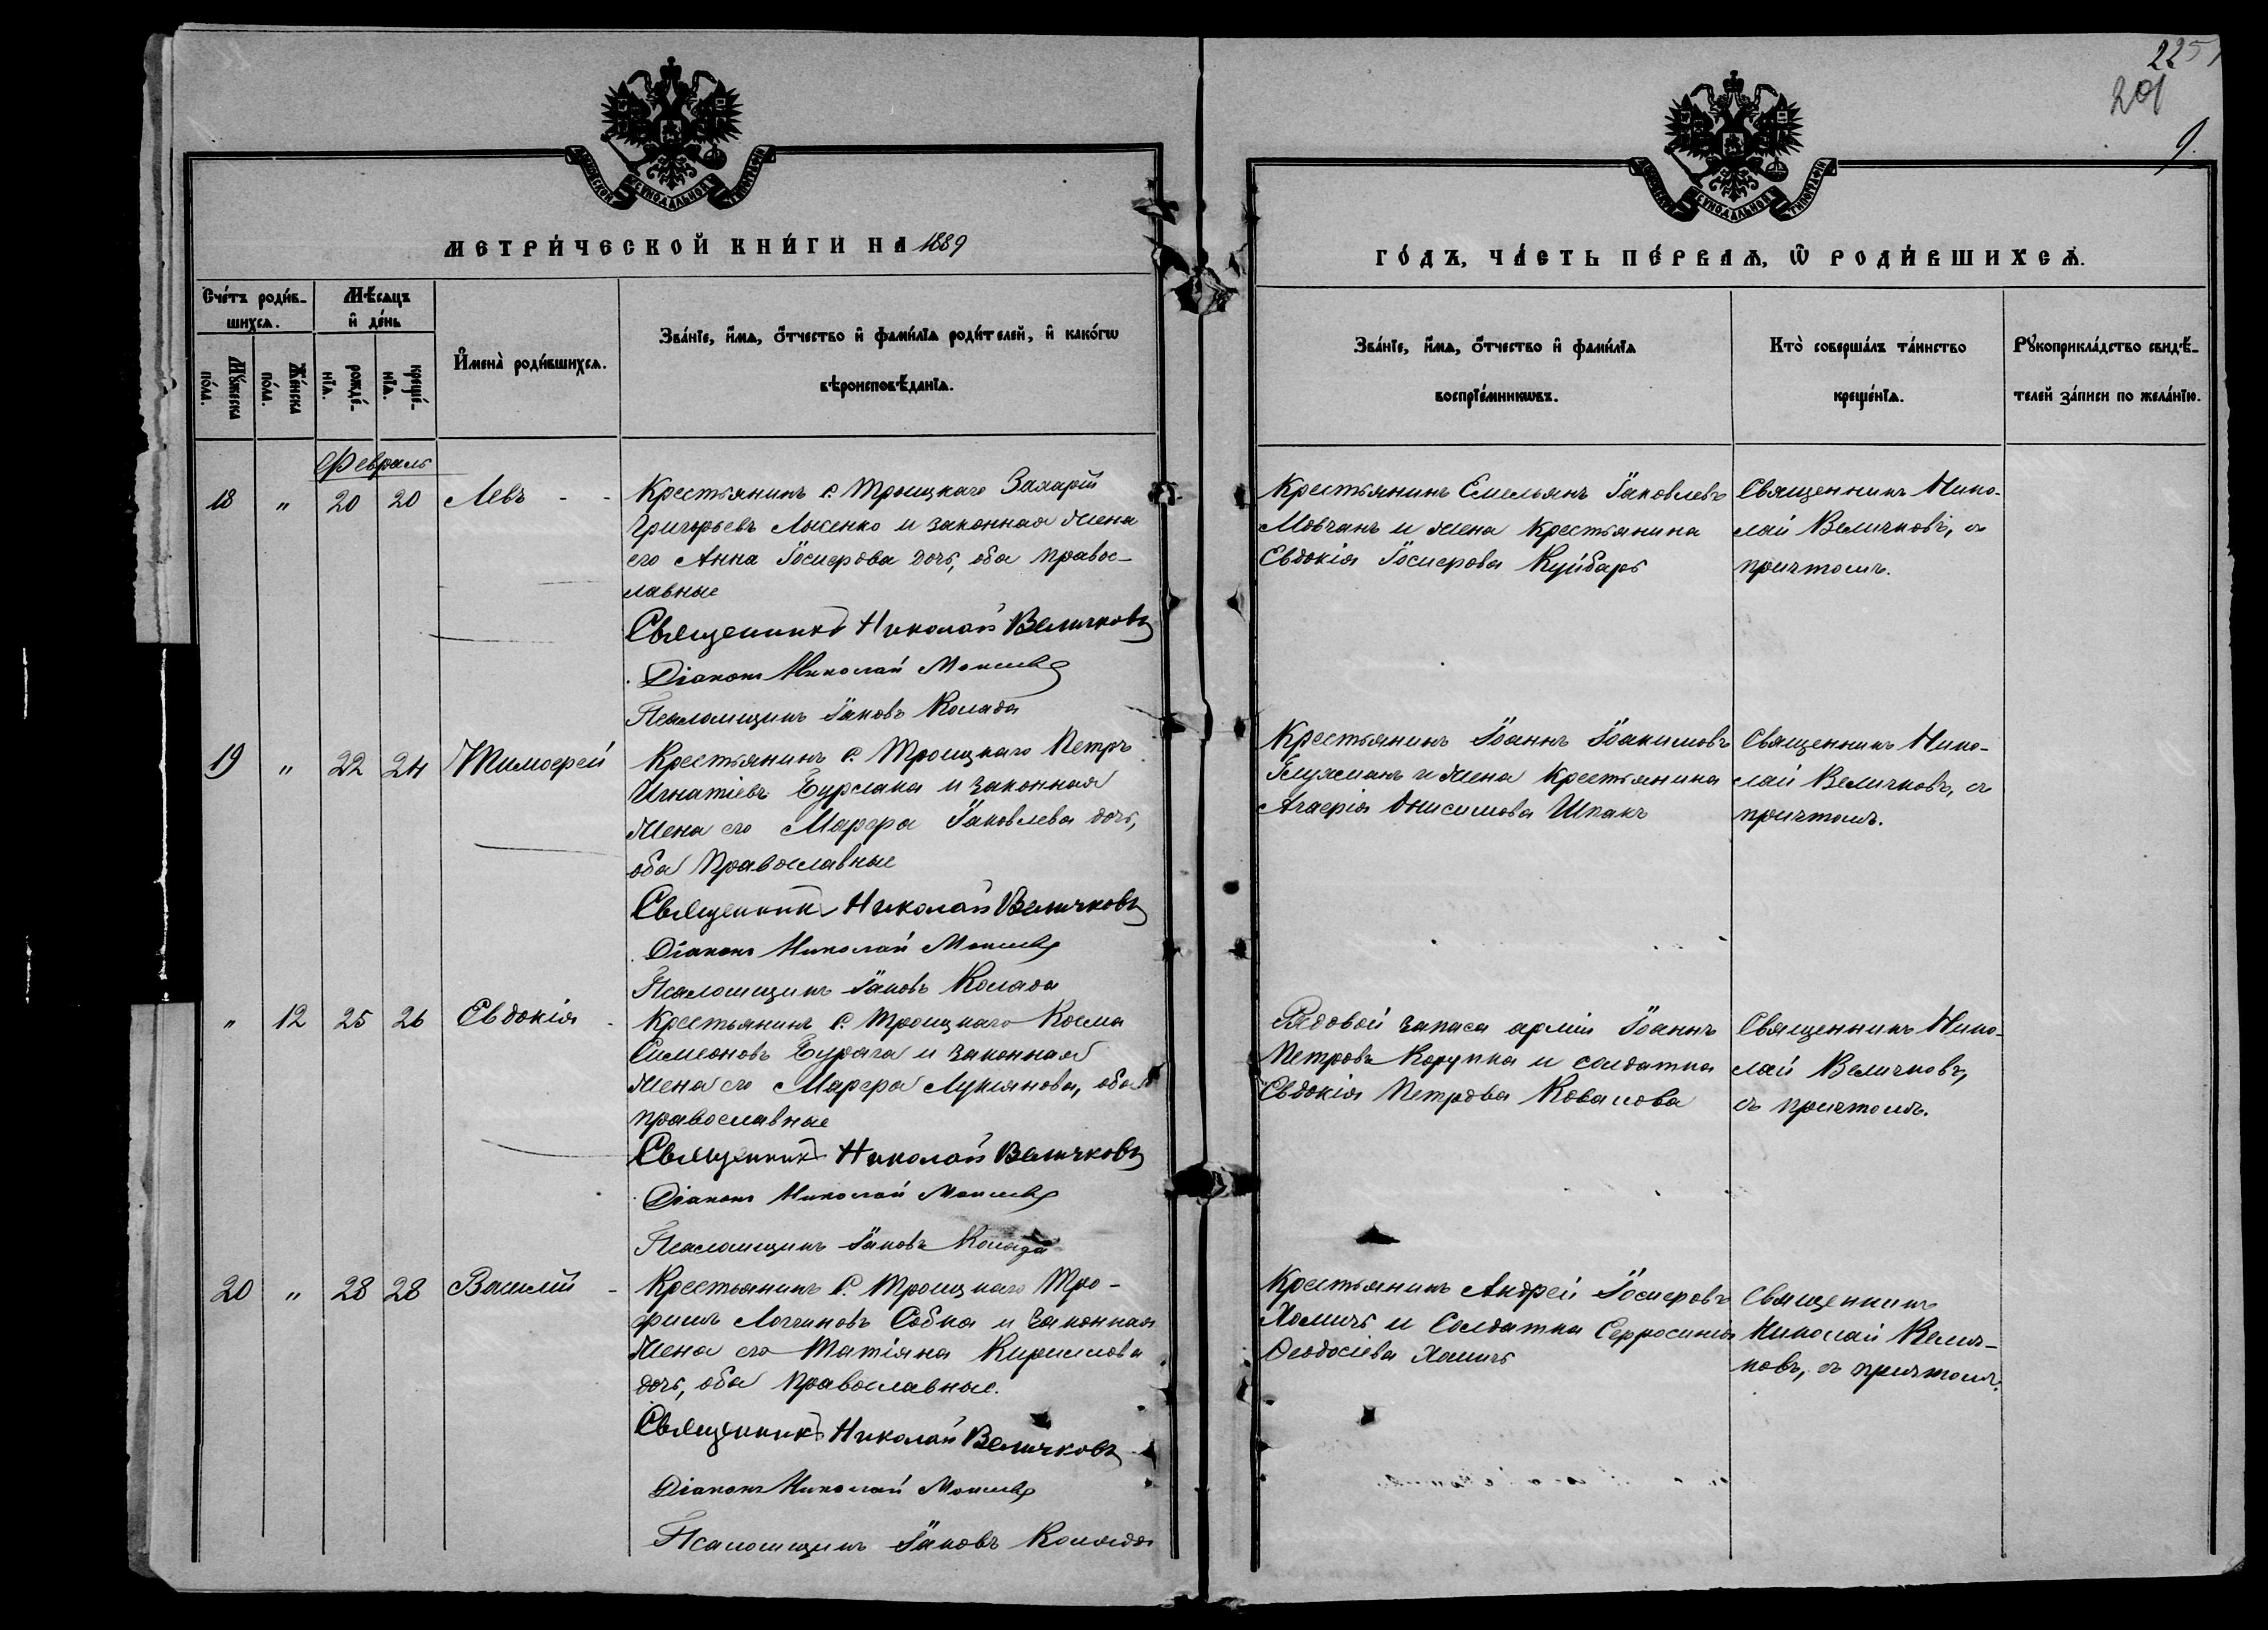 225
201
9.
МОСКОВСКОЙ СУНОДАЛЬНОЙ ТИПОГРАФІИ
МОСКОВСКОЙ СУНОДАЛЬНОЙ ТИПОГРАФІИ
МЕТРИ́ЧЕСКОЙ КНИ́ГИ НА 1889
ГО́ДЪ, ЧА́СТЬ ПЕ́РВАѦ, Ѡ҆ РОДИ́ВШИХСѦ.
Сче́тъ роди́в-
шихсѧ.
Мѣ́сѧцъ
и҆ де́нь
Мꙋ́жеска
по́ла.
Же́нска
по́ла.
рожде́-
нїѧ.
креще́-
нїѧ.
И҆мена̀ роди́вшихсѧ.
Зва́нїе, и҆́мѧ, ѻ҆́тчество и҆ фами́лїѧ роди́телей, и҆ како́гѡ
вѣроисповѣ́данїѧ.
Зва́нїе, и҆́мѧ, ѻ҆́тчество и҆ фами́лїѧ
воспрїе́мникѡвъ.
Кто̀ соверша́лъ та́инство
креще́нїѧ.
Рꙋкоприкла́дство свидѣ́-
телей за́писи по жела́нїю.
Февраль
18 " 20 20 Левъ - -
Крестьянинъ с. Троицкаго Захарій
Григорьевъ Лысенко и законная жена
его Анна Іосифова дочь, оба правос-
лавные
Священникъ Николай Величковъ
Діаконъ Николай
Псаломщикъ Іаковъ Колада
Крестьянинъ Емельянъ Іаковлевъ
Мовчанъ и жена крестьянина
Евдокія Іосифова Куйбарь
Священникъ Нико-
лай Величковъ, съ
причтомъ.
19 " 22 24 Тимофей
Крестьянинъ с. Троицкаго Петръ
Игнатіевъ Бурлака и законная
жена его Марфа Іаковлева дочь,
оба православные
Священникъ Николай Величковъ
Діаконъ Николай
Псаломщикъ Іаковъ Колада
Крестьянинъ Іоаннъ Іоакимовъ
и жена крестьянина
Агафія Онисимова Шпакъ
Священникъ Нико-
лай Величковъ, съ
причтомъ.
" 12 25 26 Евдокія -
Крестьянинъ с. Троицкаго Косма
Симеоновъ и законная
жена его Марфа Лукіянова, оба
православные
Священникъ Николай Величковъ
Діаконъ Николай
Псаломщикъ Іаковъ Колада
Рядовой запаса арміи Іоаннъ
Петровъ Корупка и солдатка
Евдокія Петрова Ковалова
Священникъ Нико-
лай Величковъ,
съ причтомъ.
20 " 28 28 Василій -
Крестьянинъ с. Троицкаго Тро-
фимъ Логгиновъ Собка и законная
жена его Татіяна Кириллова
дочь, оба православные.
Священникъ Николай Величковъ
Діаконъ Николай
Псаломщикъ Іаковъ Колада
Крестьянинъ Андрей Іосифовъ
Хомичъ и солдатка Евфросинія
Феодосіева Хомичъ
Священникъ
Николай Велич-
ковъ, съ причтомъ.